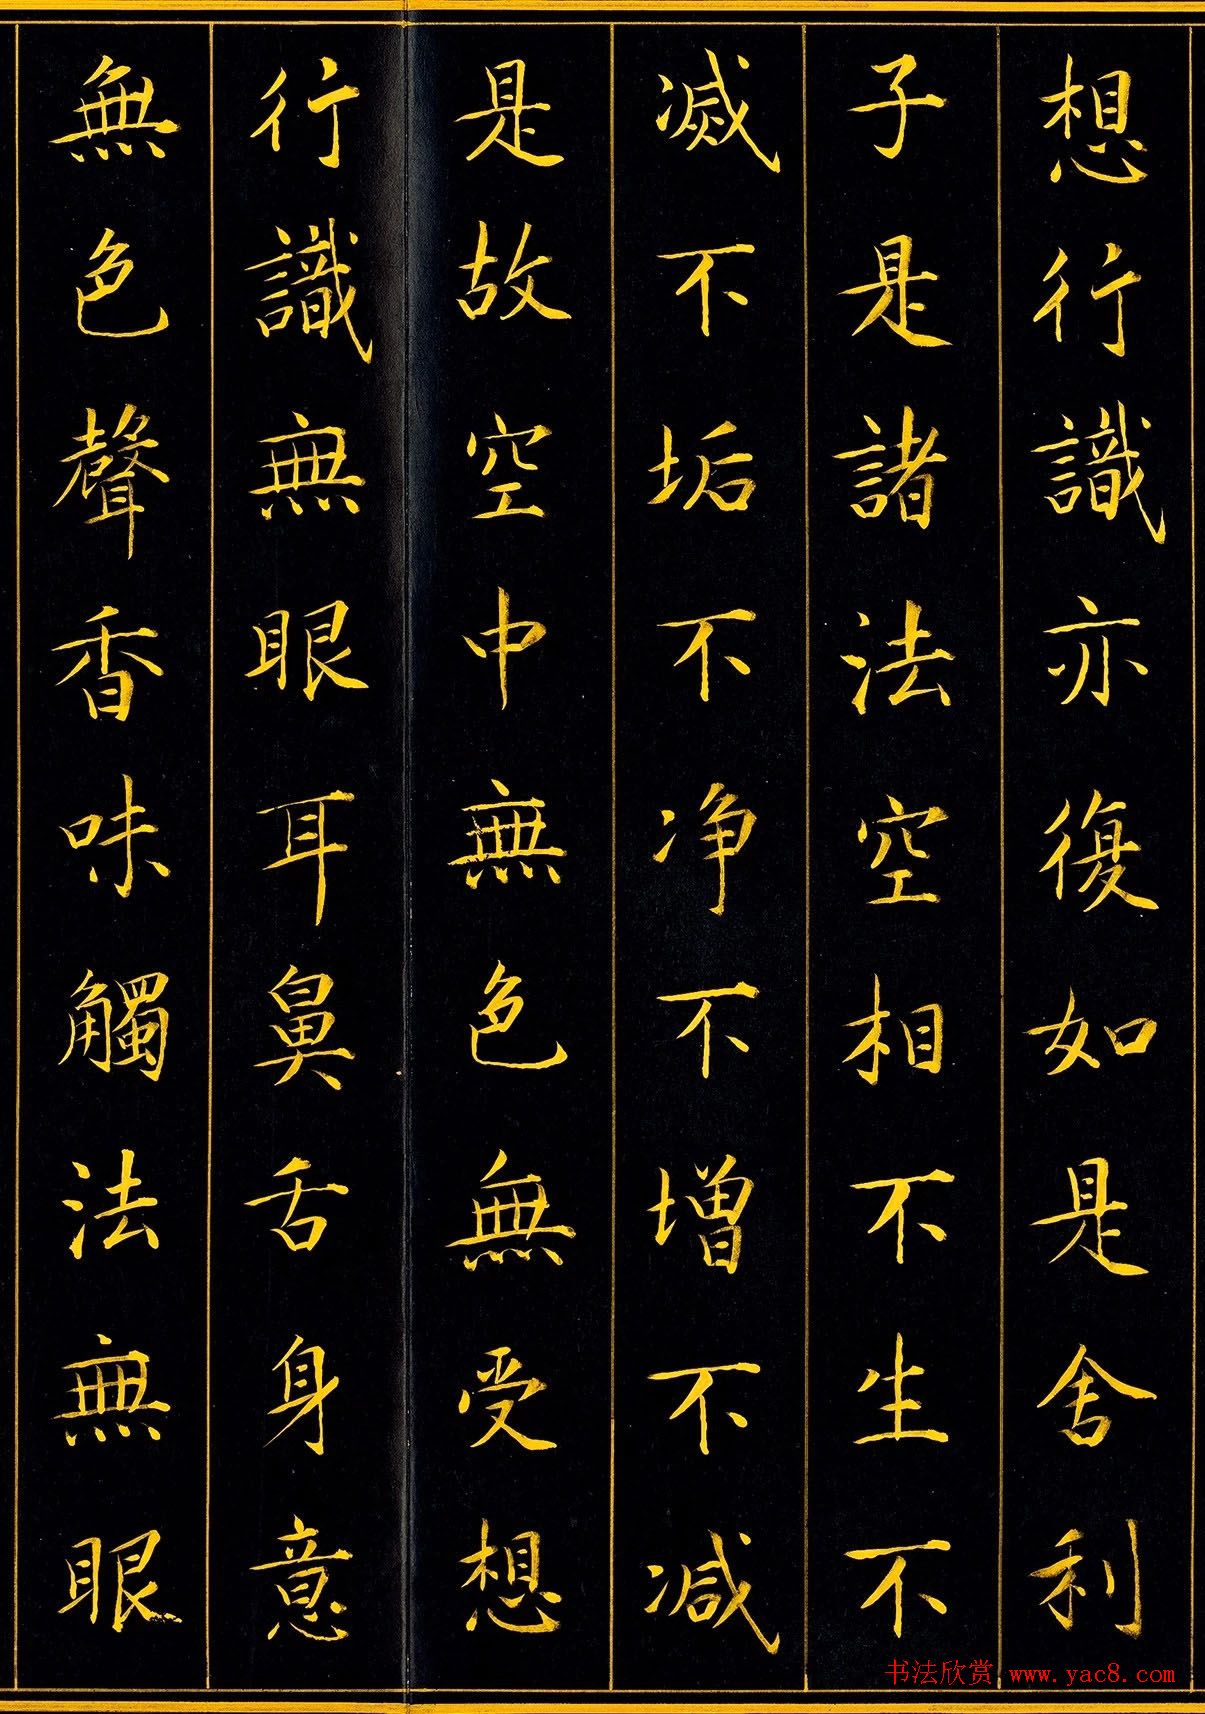 想行識亦復如是舍利
子是諸法空相不生不
滅不垢不净不增不減
是故空中無色無受想
行識無眼耳鼻舌身意
無色聲香味觸法無眼
书法欣赏 www.yac8.com